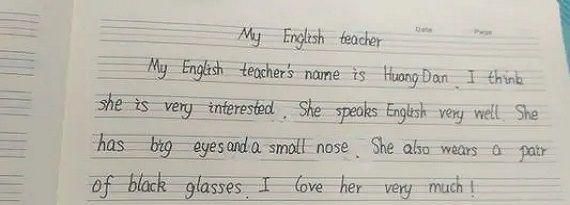 My English teacher
Date
Page
My English teacher's name is Huang Dan. I think
she is very interested. She speaks English very well. She
has big eyes and a small nose. She also wears a pair
of black glasses. I love her very much!